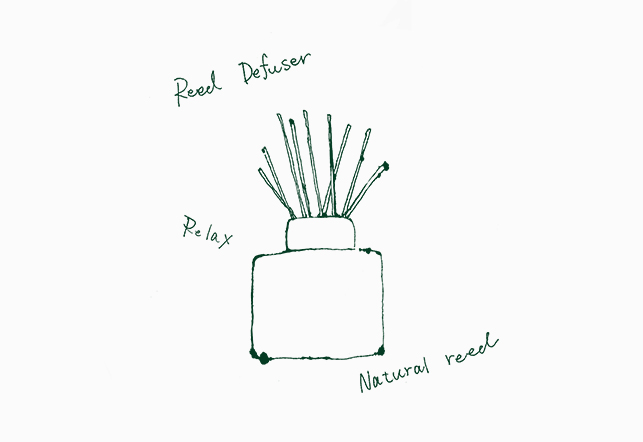 Reed Defuser
Relax
Natural reed